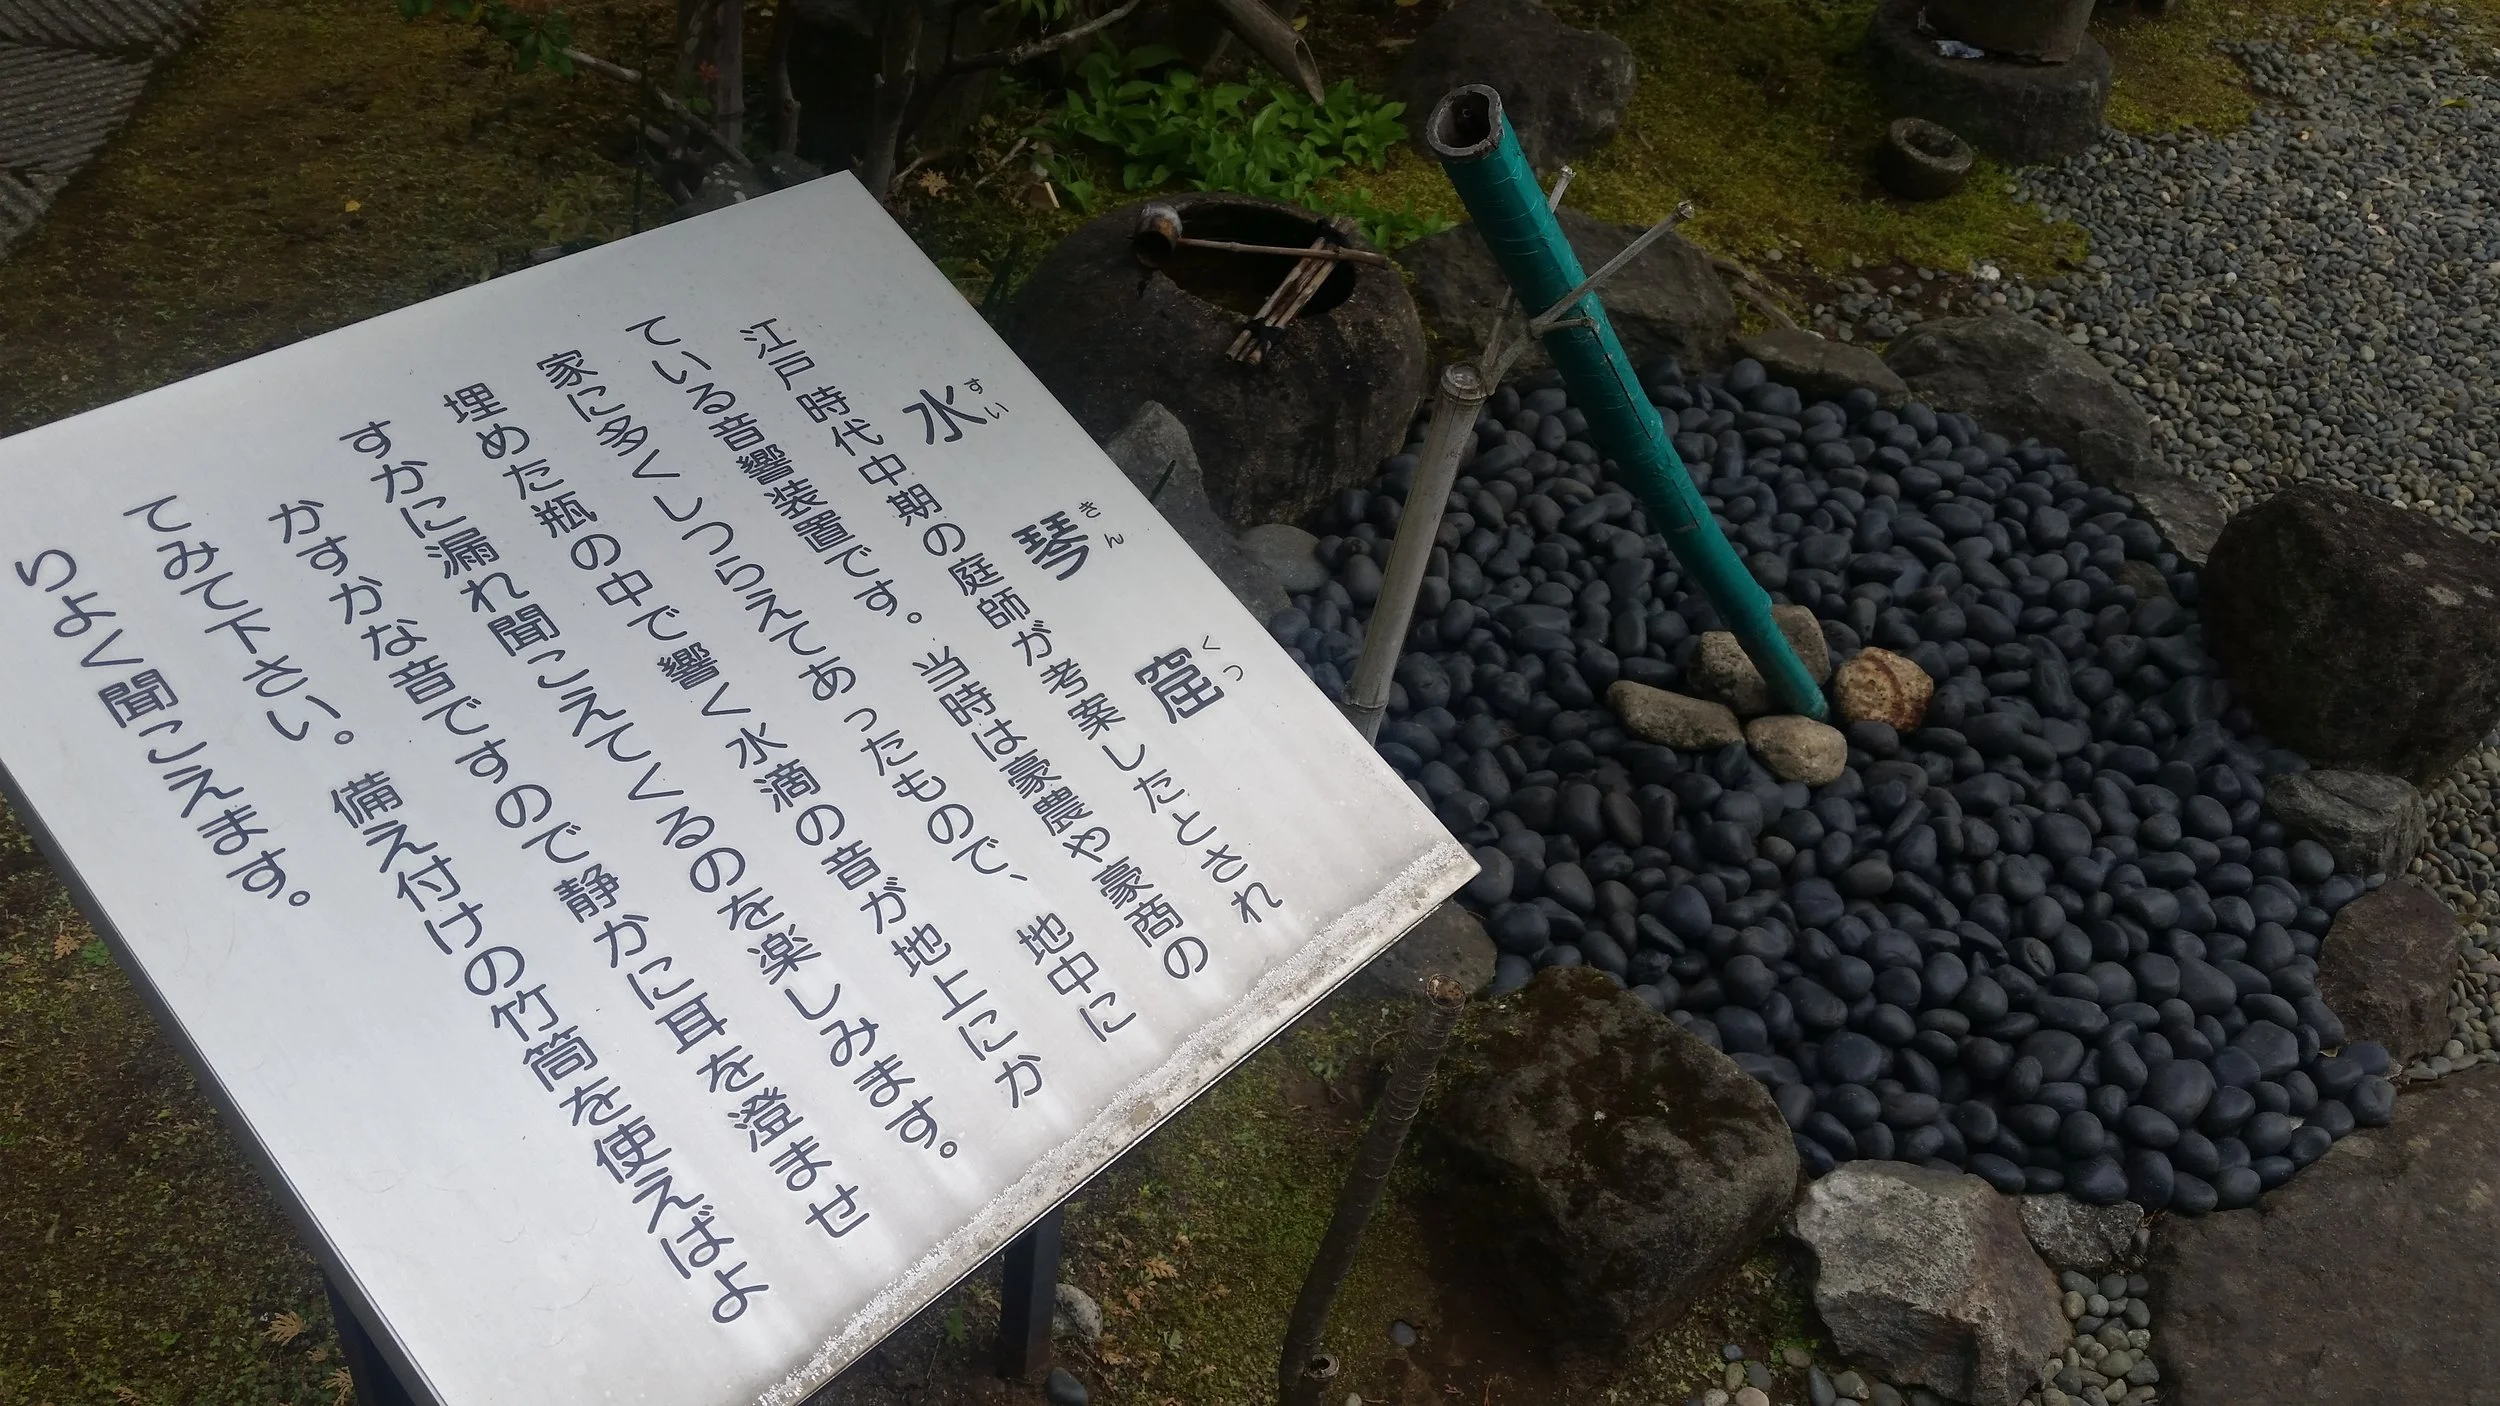 水琴窟
すいきんくつ
江戸時代中期の庭師が考案したとされ
ている音響装置です。当時は豪農や豪商の
家に多くしつらえてあったもので、地中に
埋めた瓶の中で響く水滴の音が地上にか
すかに漏れ聞こえてくるのを楽しみます。
かすかな音ですので静かに耳を澄ませ
てみて下さい。備え付けの竹筒を使えばよ
りよく聞こえます。